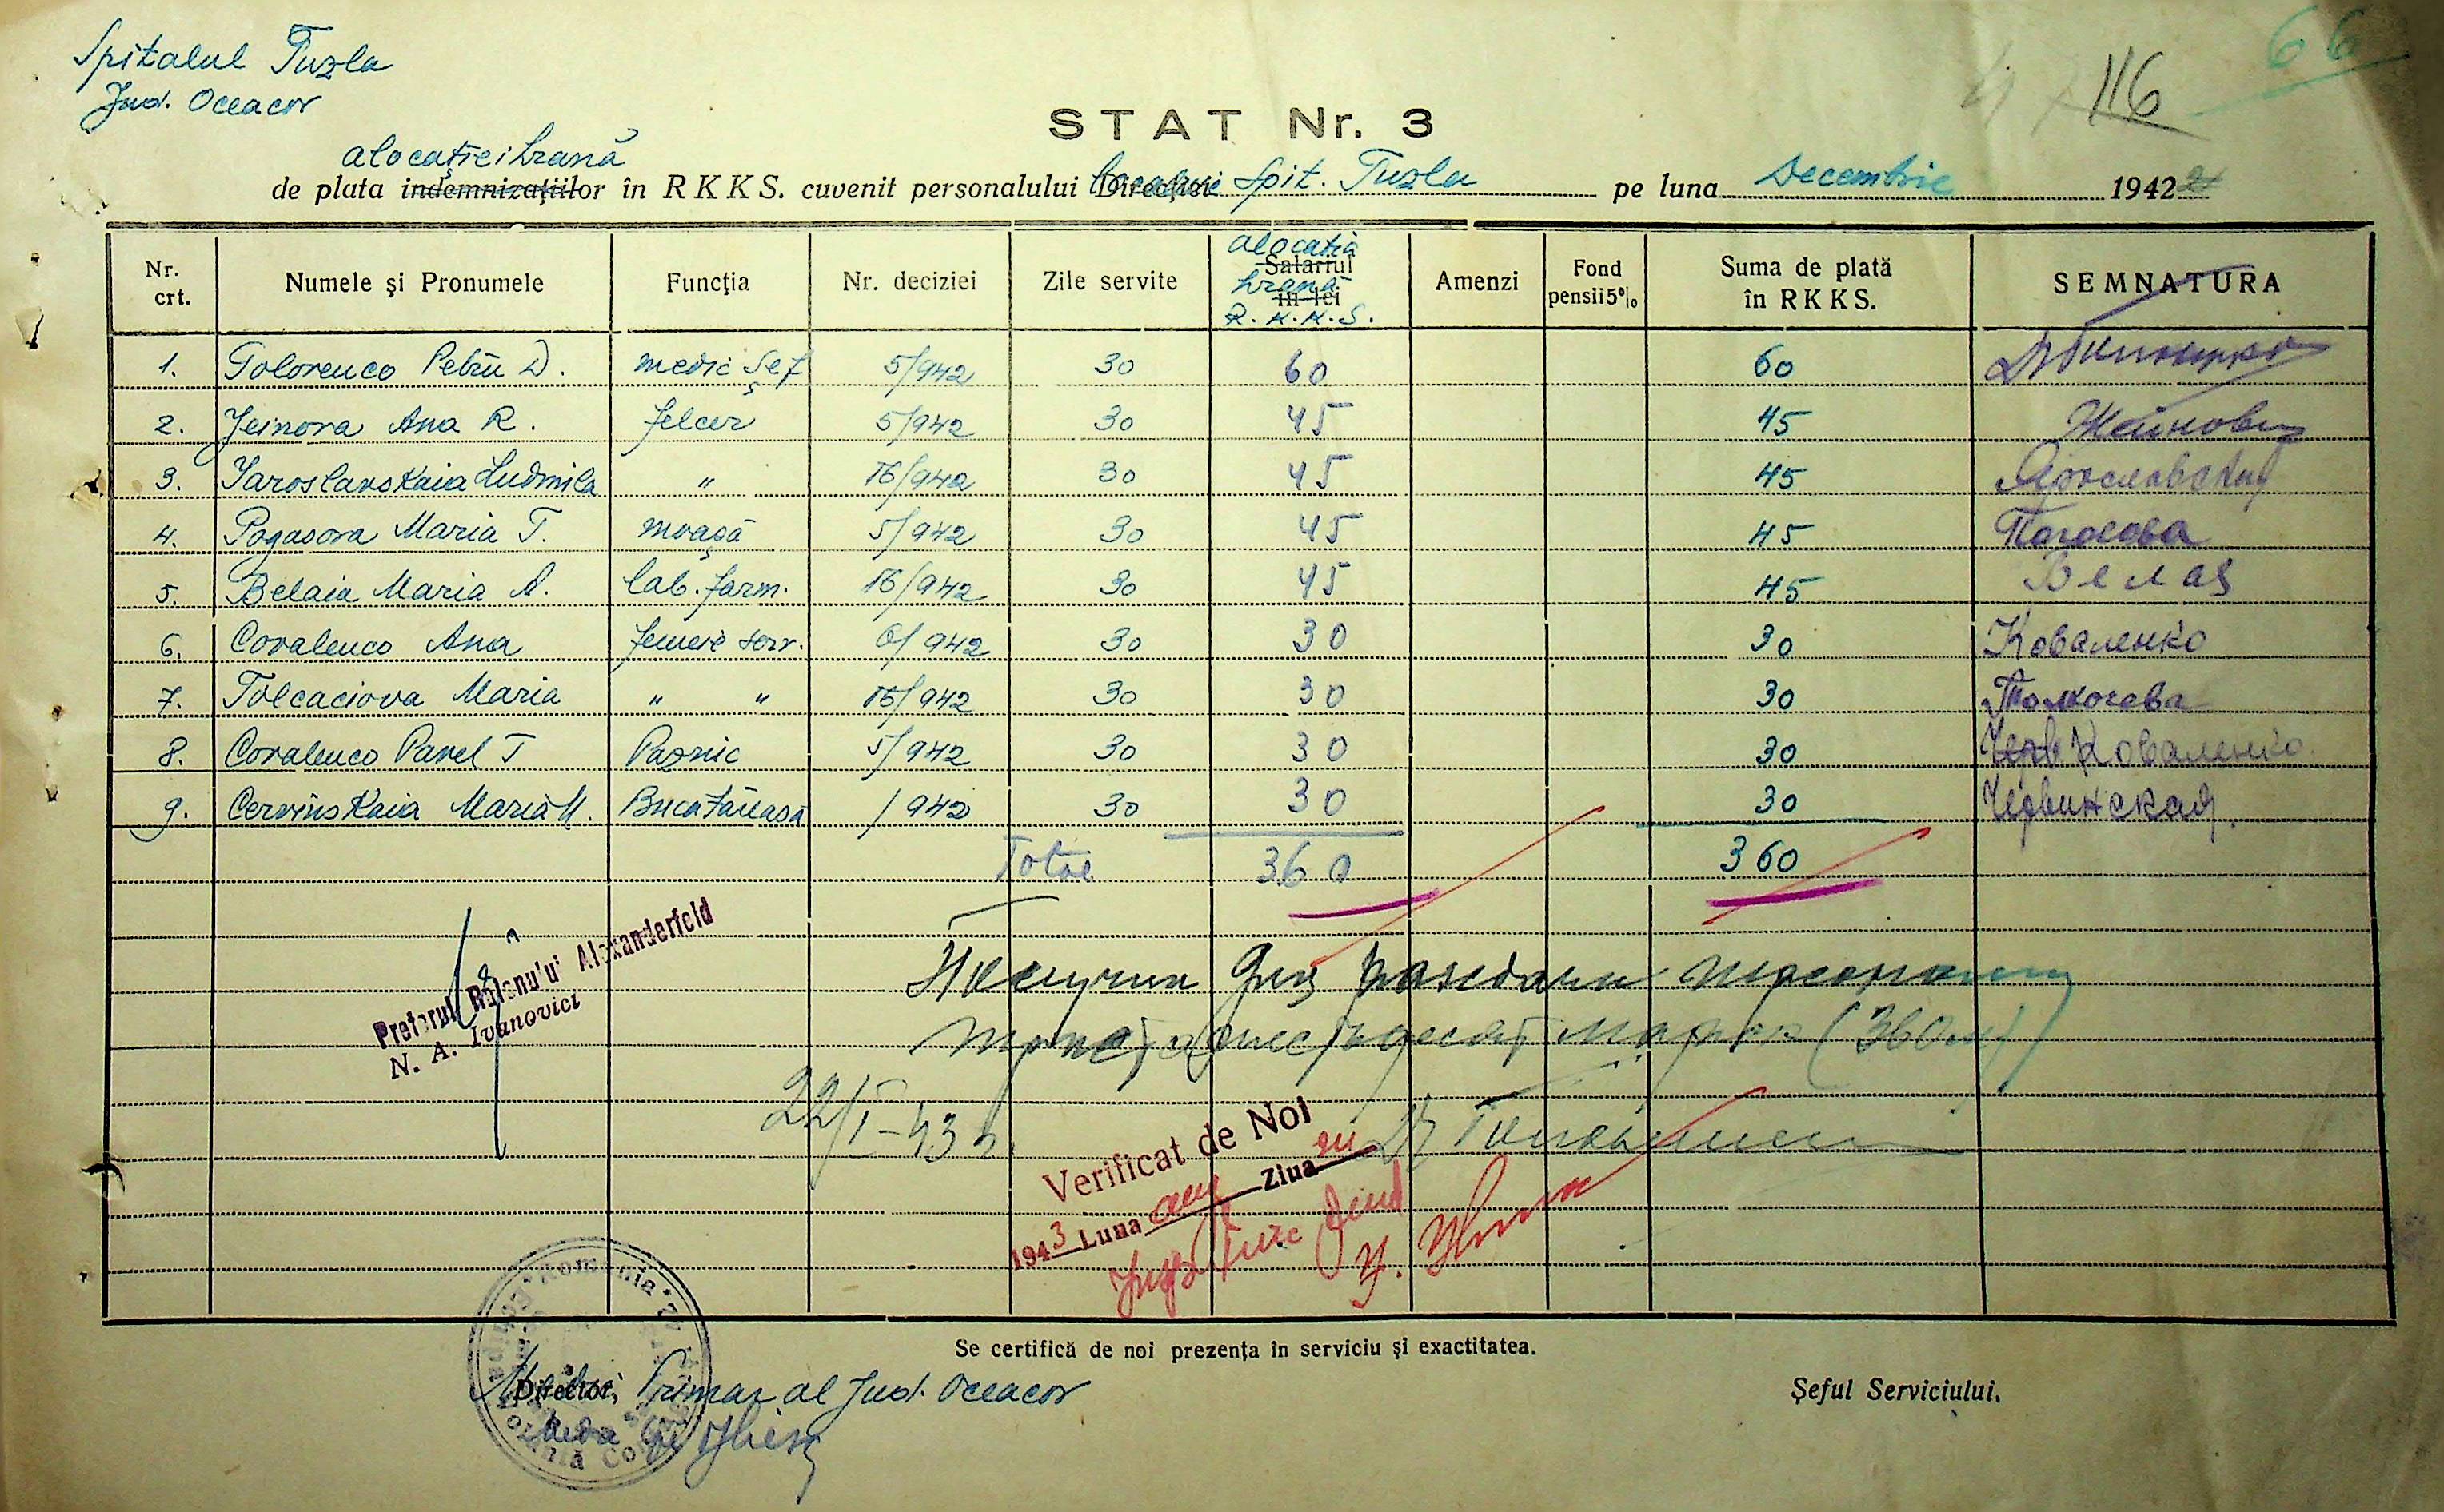 Spitalul Tuzla
Jud. Oceacov
66
116
STAT Nr. 3
alocației hrană
de plata indemnizaţiilor în RKKS. cuvenit personalului Direcției Spit. Tuzla pe luna Decembrie 1942
Nr. crt. Numele şi Pronumele Funcţia Nr. deciziei Zile servite alocația Salariul hrană in lei R.K.K.S. Amenzi Fond pensii 5% Suma de plată în RKKS. SEMNATURA
1. Golovenco Petru D. medic șef 5/942 30 60 60
2. Jeinova Ana R. felcer 5/942 30 45 45 Жейнова
3. Iaroslavskaia Ludmila " 16/942 30 45 45 Ярославская
4. Pogasova Maria T. moașă 5/942 30 45 45 Погосова
5. Belaia Maria A. lab. farm. 16/942 30 45 45 Белая
6. Covalenco Ana femeie serv. 6/942 30 30 30 Коваленко
7. Tolcaciova Maria " " 16/942 30 30 30 Толкочева
8. Covalenco Pavel T Paznic 5/942 30 30 30 Черв Коваленко
9. Cervinskaia Maria M. Bucătăreasă /942 30 30 30 Червинская
Total 360 360
Получил для раздачи персоналу
триста шестьдесят марок (360 м)
Pretorul Raionului Alexanderfeld
N. A. Ivanovici
22/I-43
Verificat de Noi
1943 Luna Ziua
Se certifică de noi prezenţa în serviciu şi exactitatea.
Director, Medic Primar al Jud. Oceacov
Şeful Serviciului,